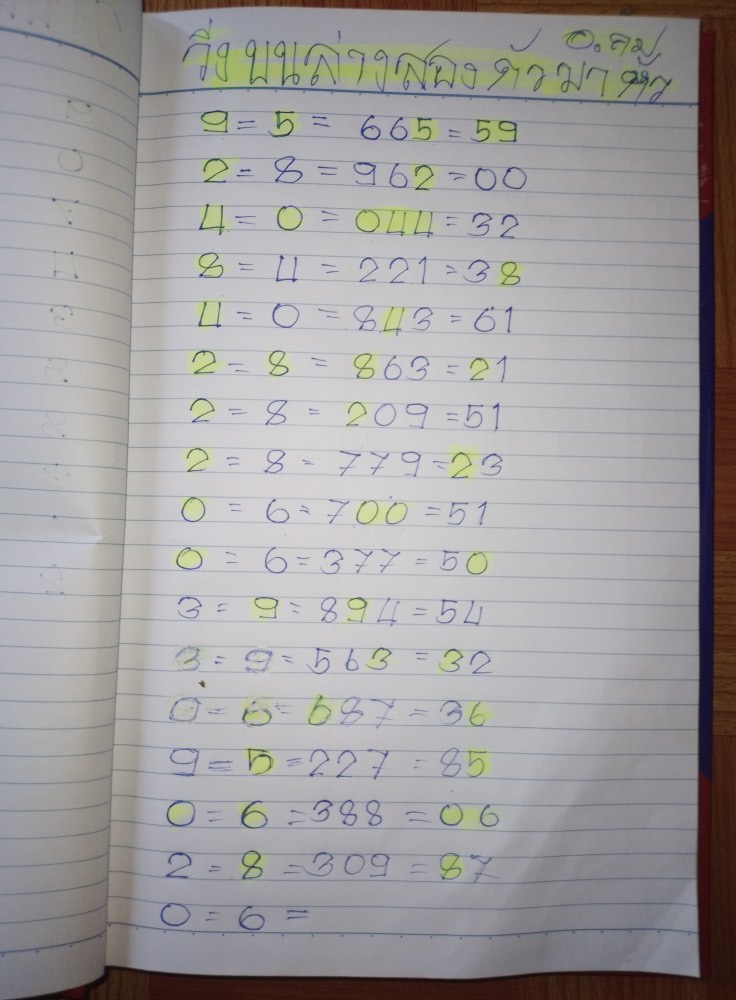 อ.ถม
วิ่งบนล่างสองตัวมาตัว
9 = 5 = 665 = 59
2 = 8 = 962 = 00
4 = 0 = 044 = 32
8 = 4 = 221 = 38
4 = 0 = 843 = 61
2 = 8 = 863 = 21
2 = 8 = 209 = 51
2 = 8 = 779 = 23
0 = 6 = 700 = 51
0 = 6 = 377 = 50
3 = 9 = 894 = 54
3 = 9 = 563 = 32
0 = 6 = 687 = 36
9 = 5 = 227 = 85
0 = 6 = 388 = 06
2 = 8 = 309 = 87
0 = 6 =